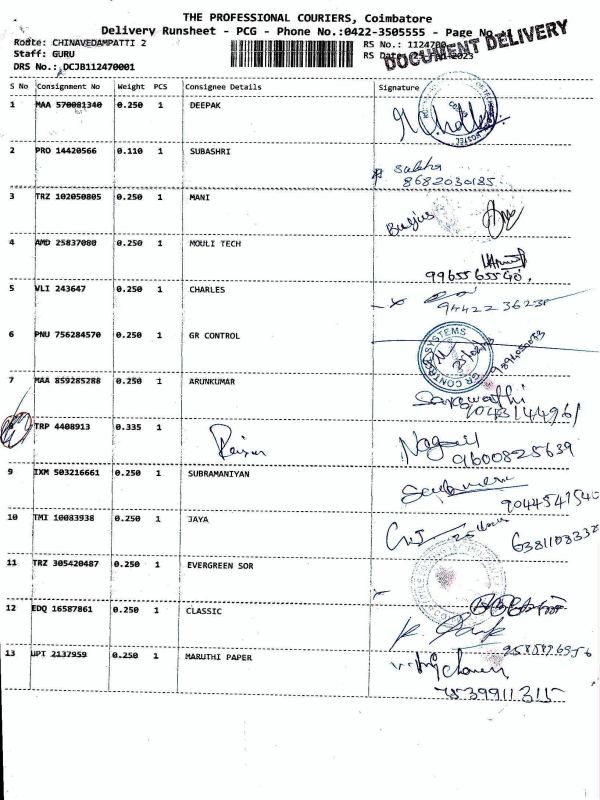 THE PROFESSIONAL COURIERS, Coimbatore
Delivery Runsheet - PCG - Phone No.:0422-3505555 - Page No.
Route: CHINAVEDAMPATTI 2
RS No.: 1124700
Staff: GURU
RS Date:
DOCUMENT DELIVERY
DRS No.: DCJB112470001
S No Consignment No Weight PCS Consignee Details Signature
1 MAA 570081340 0.250 1 DEEPAK
2 PRO 14420566 0.110 1 SUBASHRI
8682030185
3 TRZ 102050805 0.250 1 MANI
4 AMD 25837080 0.250 1 MOULI TECH
9965565540
5 VLI 243647 0.250 1 CHARLES
6 PNU 756284570 0.250 1 GR CONTROL
GR CONTROL SYSTEMS
7 MAA 859285288 0.250 1 ARUNKUMAR
Saraswathi
9043144961
8 TRP 4408913 0.335 1
9600825639
9 IXM 503216661 0.250 1 SUBRAMANIYAN
10 TMI 10083938 0.250 1 JAYA
11 TRZ 305420487 0.250 1 EVERGREEN SOR
12 EDQ 16587861 0.250 1 CLASSIC
13 UPT 2137959 0.250 1 MARUTHI PAPER
7539911315